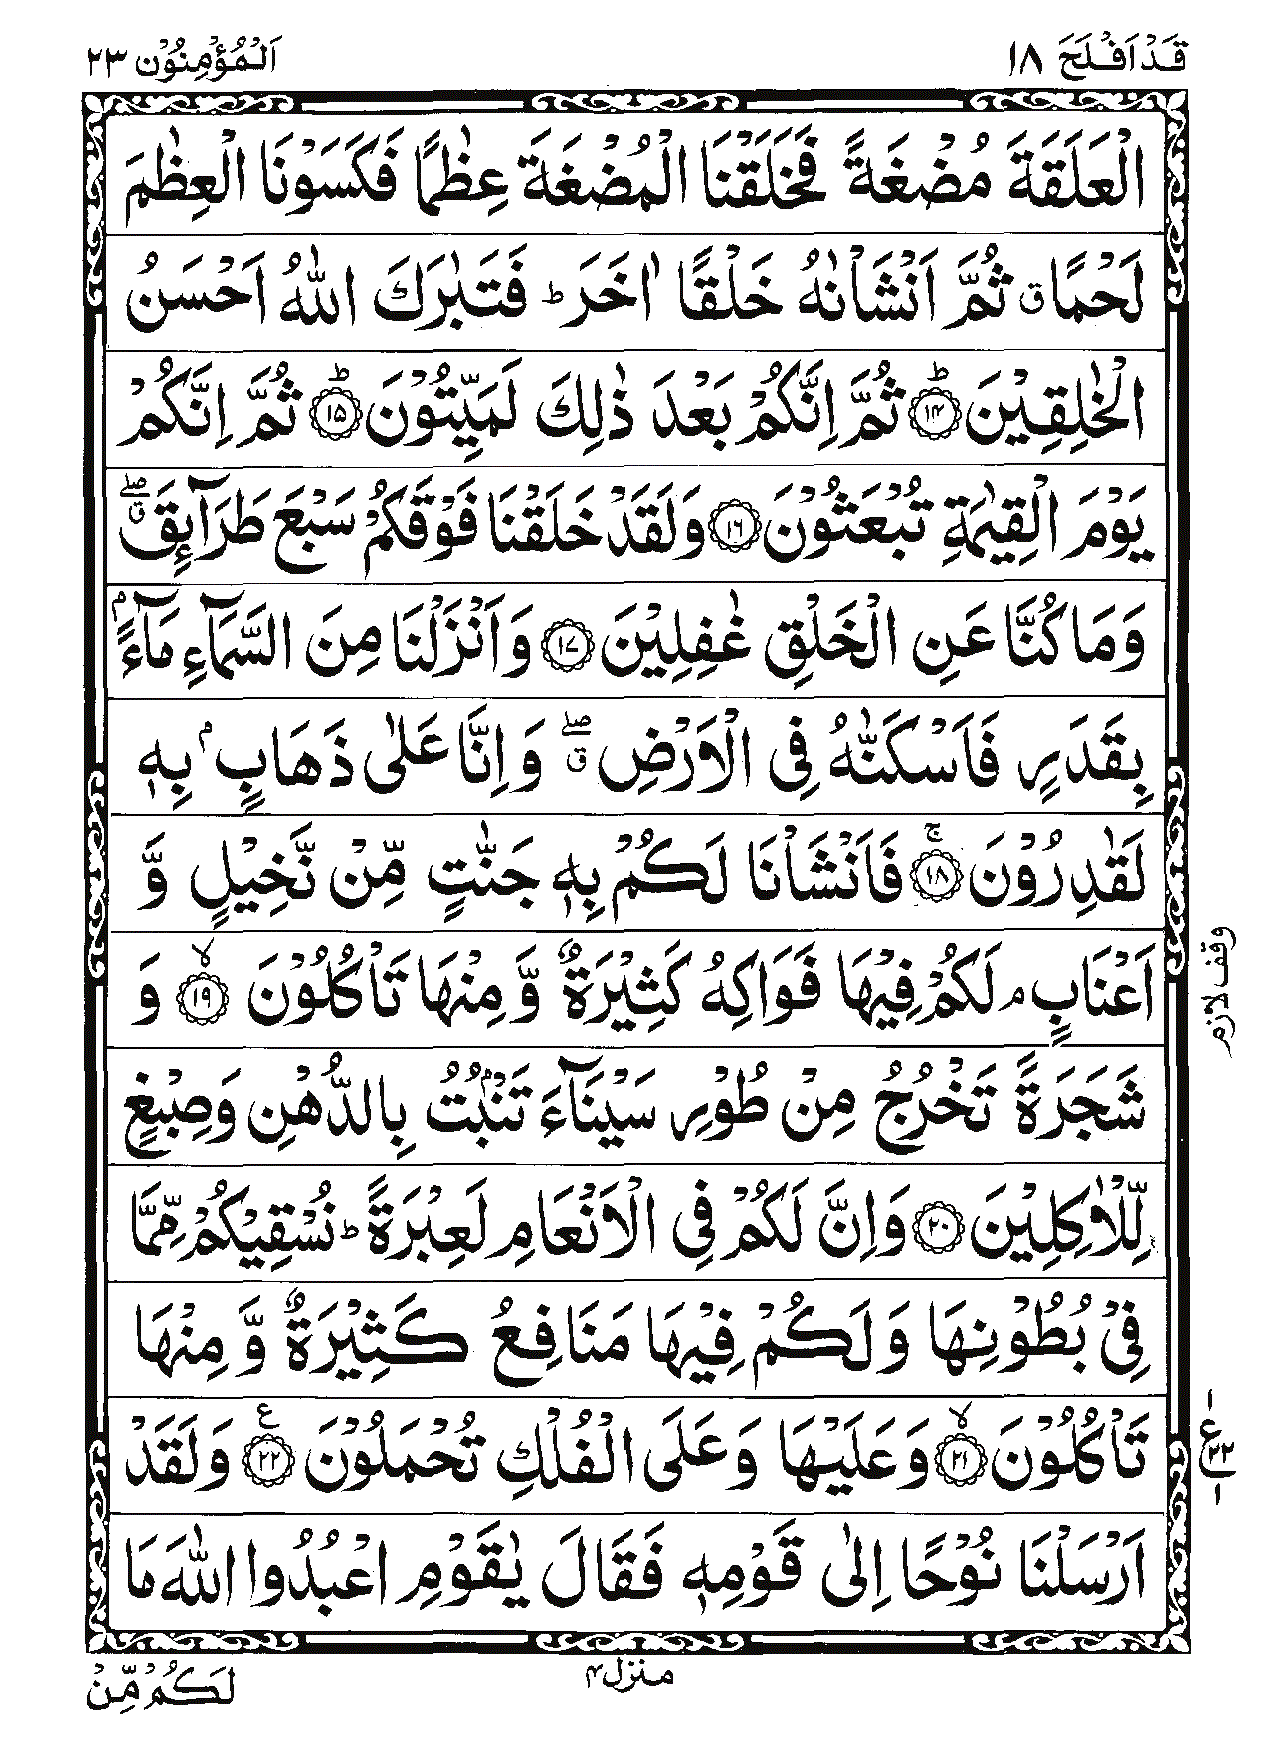 قَدْ اَفْلَحَ ١٨
اَلْمُؤْمِنُوْن ٢٣
الْعَلَقَةَ مُضْغَةً فَخَلَقْنَا الْمُضْغَةَ عِظٰمًا فَكَسَوْنَا الْعِظٰمَ
لَحْمًا ق ثُمَّ اَنْشَاْنٰهُ خَلْقًا اٰخَرَ ط فَتَبٰرَكَ اللّٰهُ اَحْسَنُ
الْخٰلِقِيْنَ ط ﴿١٤﴾ ثُمَّ اِنَّكُمْ بَعْدَ ذٰلِكَ لَمَيِّتُوْنَ ط ﴿١٥﴾ ثُمَّ اِنَّكُمْ
يَوْمَ الْقِيٰمَةِ تُبْعَثُوْنَ ﴿١٦﴾ وَلَقَدْ خَلَقْنَا فَوْقَكُمْ سَبْعَ طَرَآئِقَ ق صلے
وَمَا كُنَّا عَنِ الْخَلْقِ غٰفِلِيْنَ ﴿١٧﴾ وَاَنْزَلْنَا مِنَ السَّمَآءِ مَآءًۢ
بِقَدَرٍ فَاَسْكَنّٰهُ فِى الْاَرْضِ ق صلے وَاِنَّا عَلٰى ذَهَابٍۭ بِهٖ
لَقٰدِرُوْنَ ج ﴿١٨﴾ فَاَنْشَاْنَا لَكُمْ بِهٖ جَنّٰتٍ مِّنْ نَّخِيْلٍ وَّ
اَعْنَابٍ م لَكُمْ فِيْهَا فَوَاكِهُ كَثِيْرَةٌ وَّ مِنْهَا تَاْكُلُوْنَ لا ﴿١٩﴾ وَ
وقف لازم
شَجَرَةً تَخْرُجُ مِنْ طُوْرِ سَيْنَآءَ تَنْۢبُتُ بِالدُّهْنِ وَصِبْغٍ
لِّلْاٰكِلِيْنَ ﴿٢٠﴾ وَاِنَّ لَكُمْ فِى الْاَنْعَامِ لَعِبْرَةً ط نُسْقِيْكُمْ مِّمَّا
فِىْ بُطُوْنِهَا وَلَكُمْ فِيْهَا مَنَافِعُ كَثِيْرَةٌ وَّ مِنْهَا
تَاْكُلُوْنَ لا ﴿٢١﴾ وَعَلَيْهَا وَعَلَى الْفُلْكِ تُحْمَلُوْنَ ع ﴿٢٢﴾ وَلَقَدْ
١ ع ٢٢ ١
اَرْسَلْنَا نُوْحًا اِلٰى قَوْمِهٖ فَقَالَ يٰقَوْمِ اعْبُدُوا اللّٰهَ مَا
منزل ٤
لَكُمْ مِّنْ